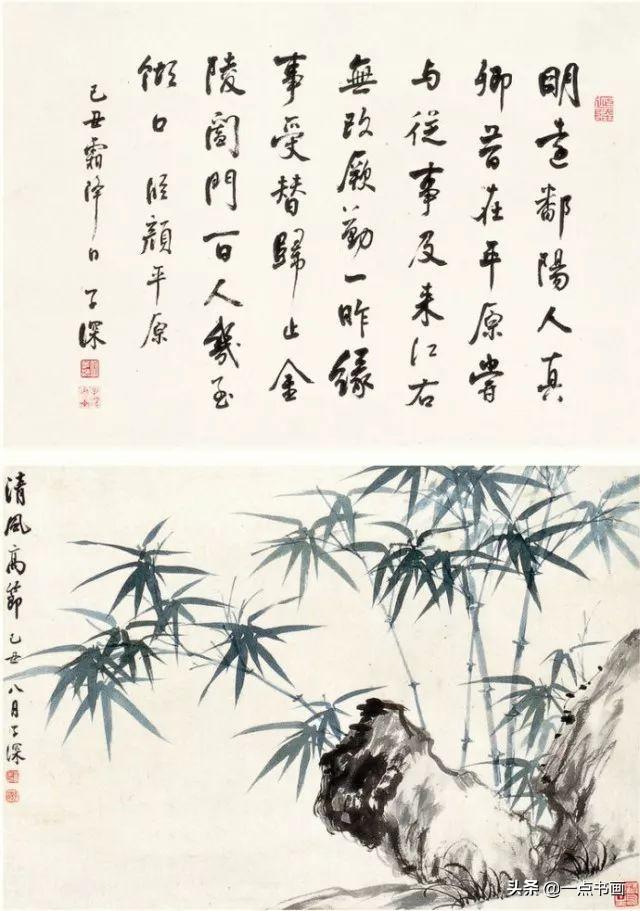 明遠鄱陽人真
卿昔在平原嘗
与從事及来江右
無改厥勤一昨緣
事受替歸止金
陵闔門百人幾至
餬口 临顏平原
己丑霜降日 子深
清風高節 己丑八月子深
头条 @一点书画